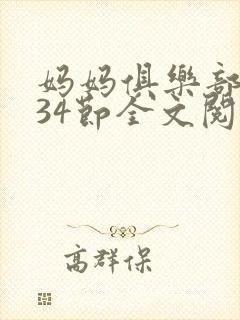 妈妈俱樂部
34節全文閱
高群保